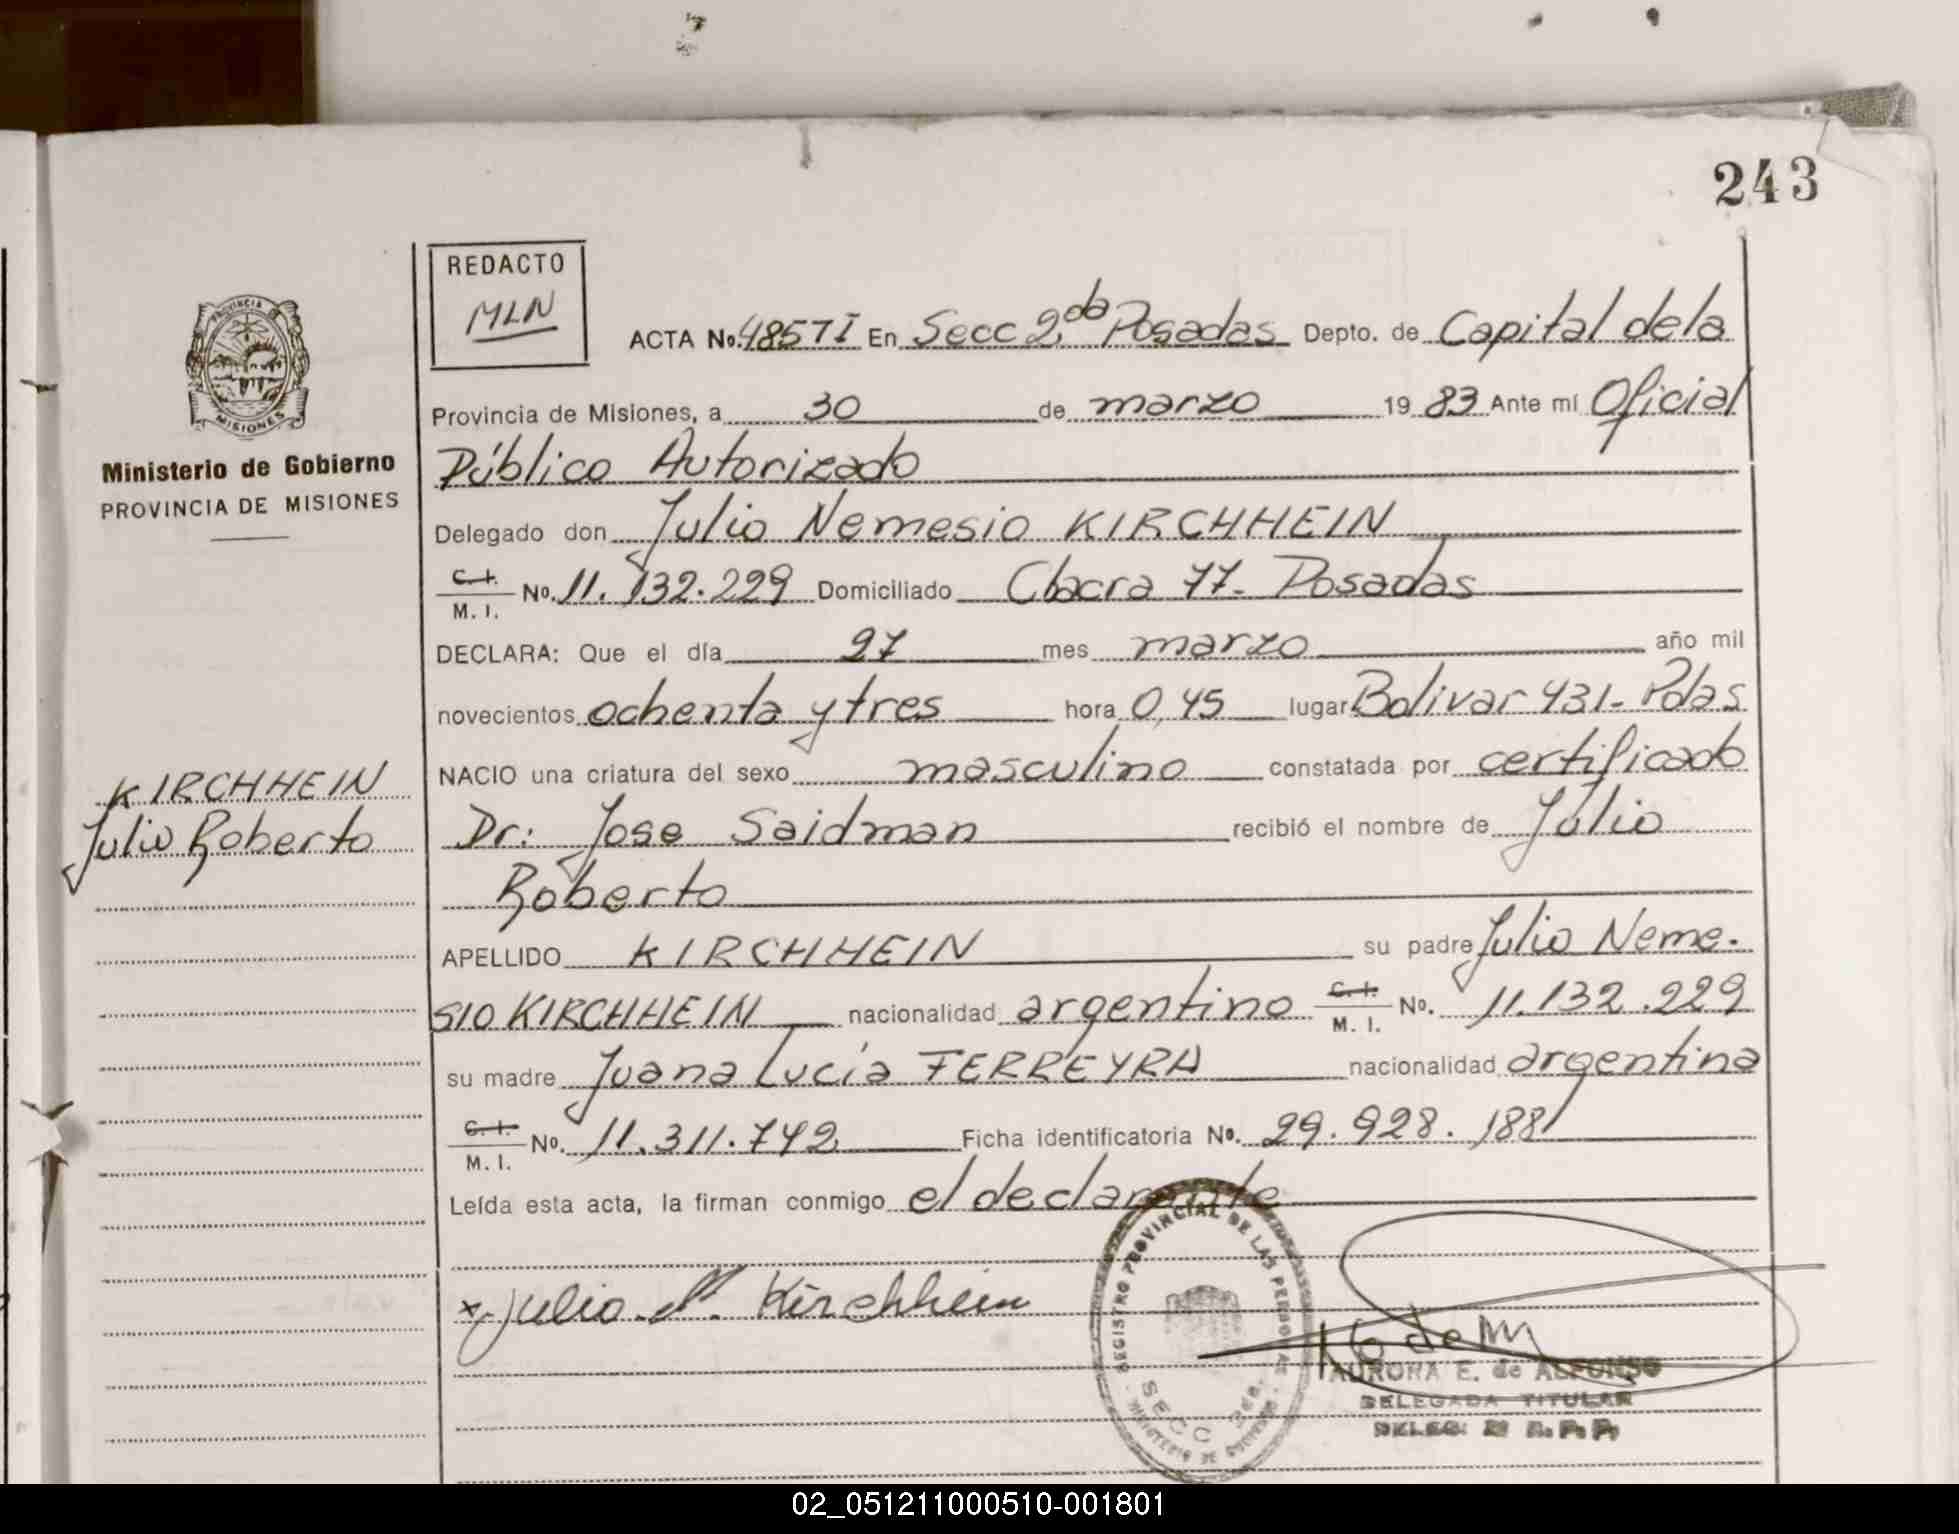 243
REDACTO
MLN
PROVINCIA
MISIONES
Ministerio de Gobierno
PROVINCIA DE MISIONES
KIRCHHEIN
Julio Roberto
ACTA No. 485 TI En Secc 2da Posadas Depto. de Capital de la
Provincia de Misiones, a 30 de marzo 19 83 Ante mí Oficial
Público Autorizado
Delegado don Julio Nemesio KIRCHHEIN
C. I. M. I. No. 11.132.229 Domiciliado Chacra 77- Posadas
DECLARA: Que el día 27 mes marzo año mil
novecientos ochenta y tres hora 0,45 lugar Bolivar 431- Pdas
NACIO una criatura del sexo masculino constatada por certificado
Dr: Jose Saidman recibió el nombre de Julio
Roberto
APELLIDO KIRCHHEIN su padre Julio Neme-
sio KIRCHHEIN nacionalidad argentino C. I. M. I. No. 11.132.229
su madre Juana Lucía FERREYRA nacionalidad argentina
C. I. M. I. No. 11.311.742 Ficha identificatoria No. 29.928.188
Leída esta acta, la firman conmigo el declarante
x Julio N. Kirchhein
REGISTRO PROVINCIAL DE LAS PERSONAS
SECC 2da.
MINISTERIO DE GOBIERNO
AURORA E. de ALFONSO
DELEGADA TITULAR
DELEG. 2a R. P. P.
02_051211000510-001801